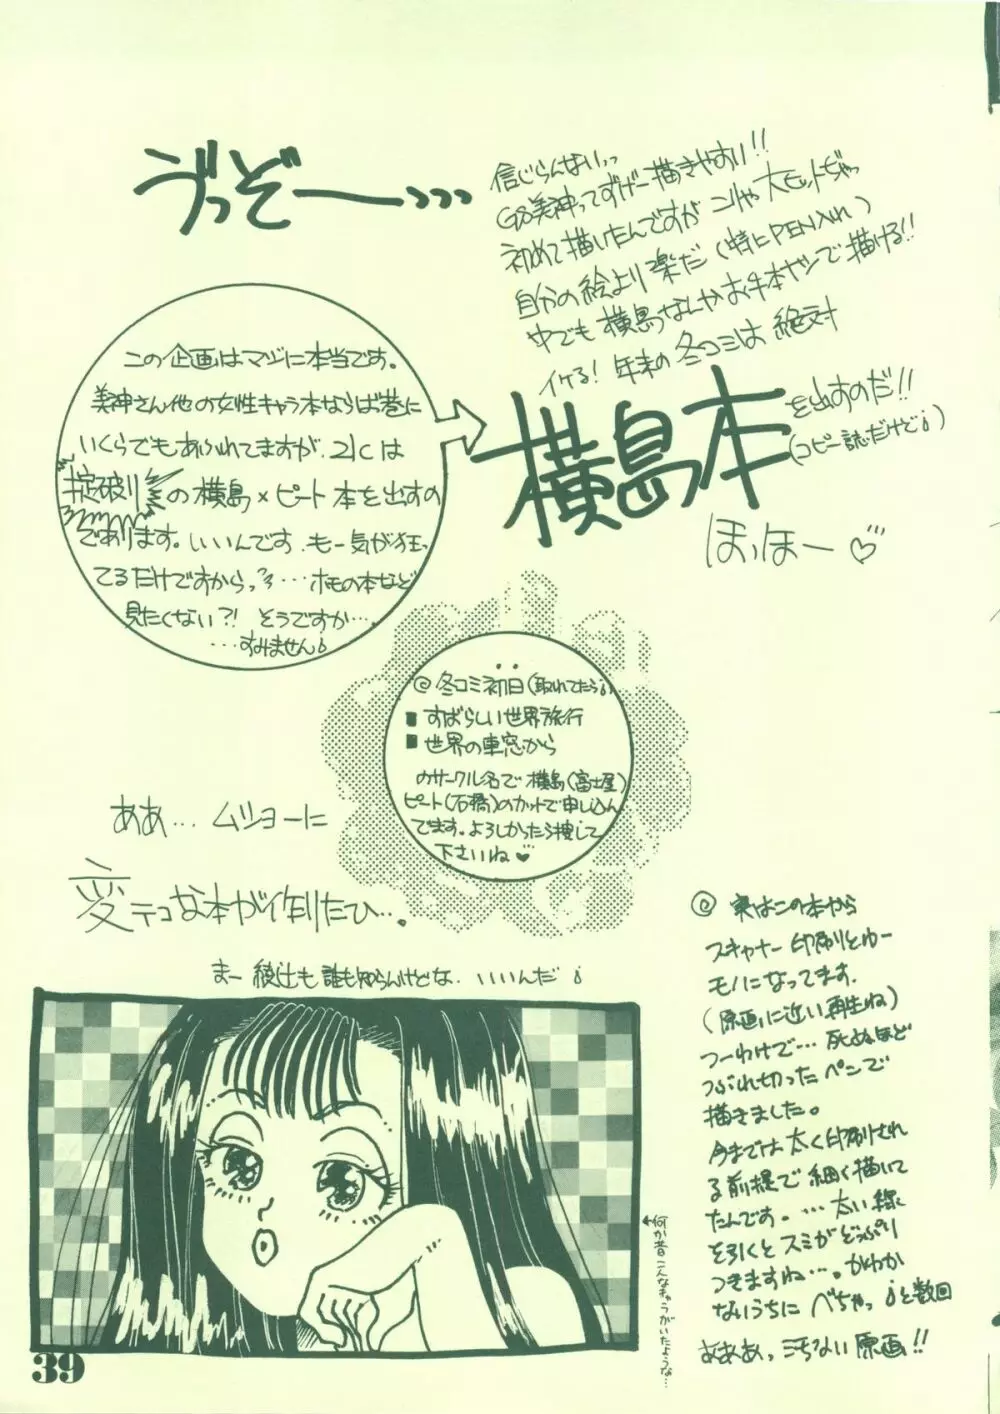 づっぞー、、、
信じらんないっっ
GS美神ってすげー描きやすい!!
初めて描いたんですが こりゃ大ヒットぢゃっ
自分の絵より楽だ(特にPEN入れ)
中でも 横島なんかお手本ナシで描ける!!
イケる! 年末の冬コミは絶対
横島本を出すのだ!!
(コピー誌だけど)
ほっほー♡
この企画はマヅに本当です。
美神さん他の女性キャラ本ならば巷に
いくらでもあふれてますが、21Cは
掟破りの横島×ピート本を出すの
であります。いいんです、もー気が狂っ
てるだけですからっ…ホモの本など
見たくない?! そうですか…。
…すみません
◎冬コミ初日(取れてたら)
■すばらしい世界旅行
■世界の車窓から
のサークル名で 横島(富士屋)
ピート(石橋)のカットで申し込ん
でます。よろしかったら捜して
下さいね♥
ああ… ムショーに
変テコな本が作りたひ…。
まー 綾辻も誰も知らんけどな、いいんだ
◎ 実はこの本から
スキャナー印刷とゆー
モノになってます.
(原画に近い再生ね)
つーわけで… 死ぬほど
つぶれ切ったペンで
描きました。
今までは太く印刷され
る前提で細く描いて
たんです。…太い線
を引くとスミがどっぷり
つきますね…。かわか
ないうちに べちゃっ と数回
あああっ きちない原画!!
←何か昔こんなキャラがいたような…
39